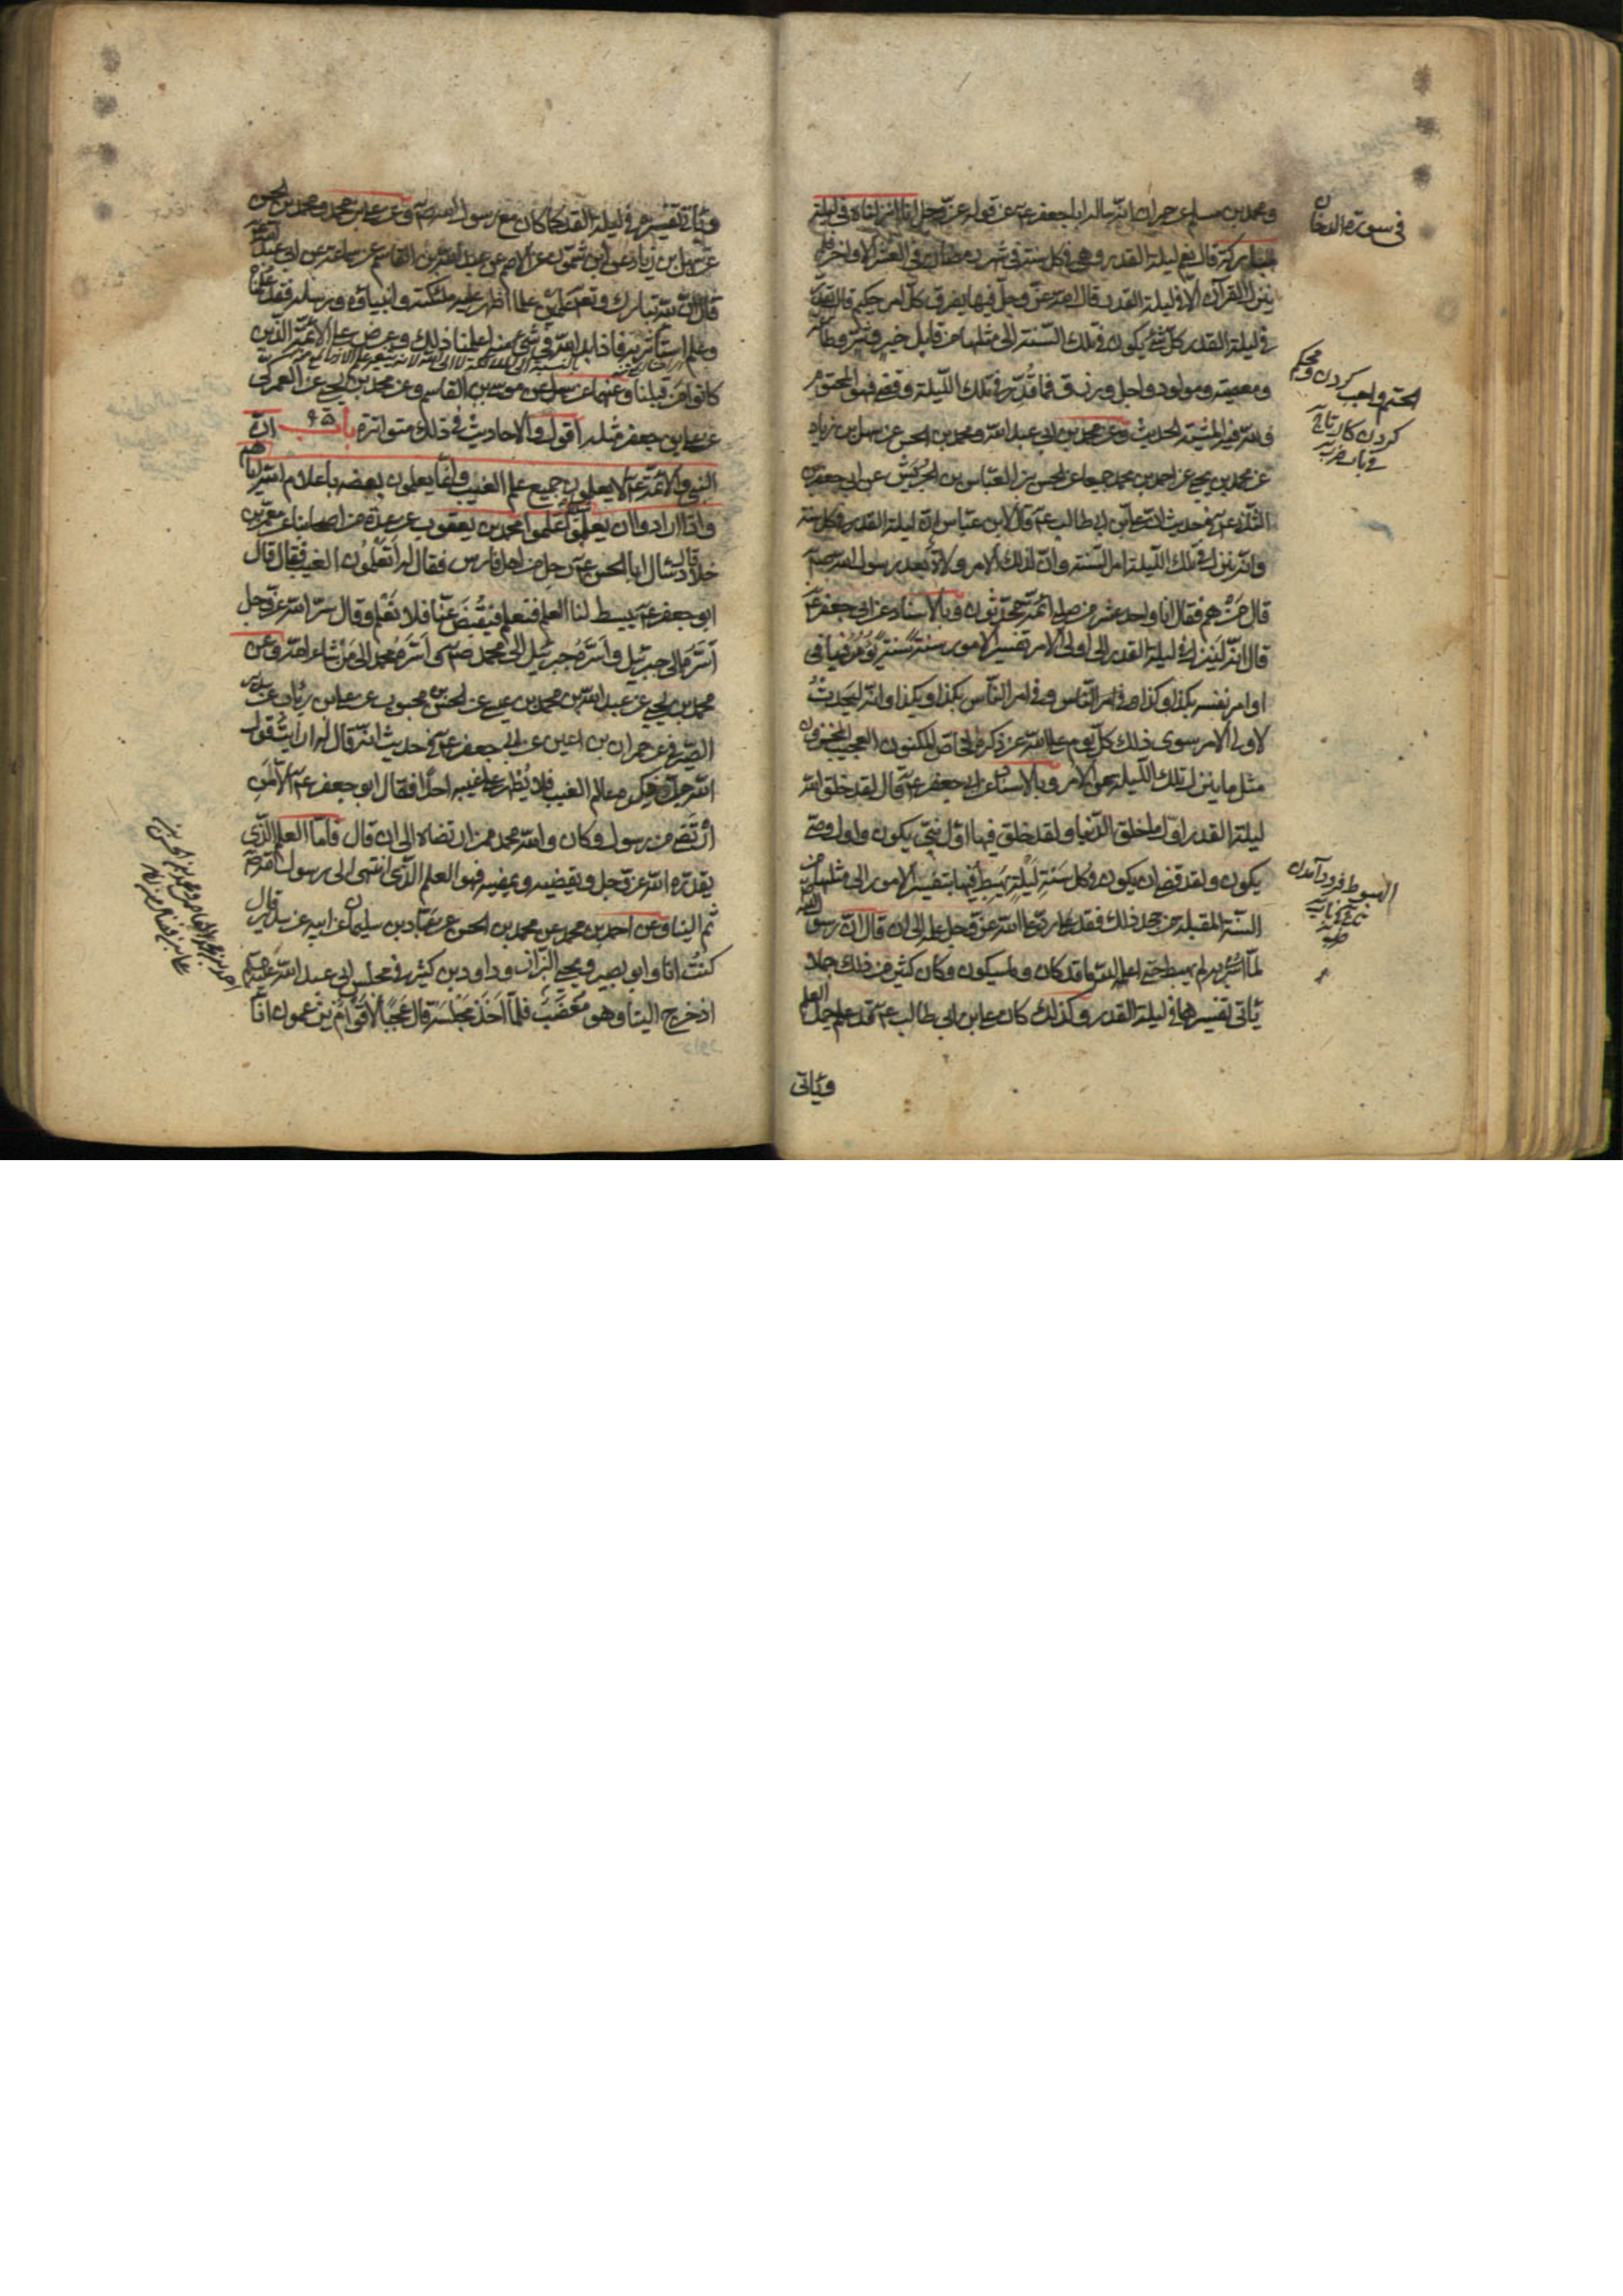 ومحمد بن مسلم عن حمران انه سال ابا جعفر عـ عن قوله عز وجل انا انزلناه فى ليلة
مباركة قال نعم ليلة القدر وهى فى كل سنة فى شهر رمضان فى العشر الاواخر فلم
ينزل القرآن الا فى ليلة القدر قال الله عز وجل فيها يفرق كل امر حكيم قال يقدر
فى ليلة القدر كل شئ يكون فى تلك السنة الى مثلها من قابل خير وشر وطاعة
ومعصية ومولود واجل ورزق فما قُدّر فى تلك الليلة وقضى فهو المحتوم
ولله فيه المشية الحديث وعن محمد بن ابى عبد الله ومحمد بن الحسن عن سهل بن زياد
عن محمد بن يحيى عن احمد بن محمد جميعا عن الحسن بن العباس بن الجريش عن ابى جعفر
الثانى عـ فى حديث ان على بن ابى طالب عـ قال لابن عباس ان ليلة القدر فى كل سنة
وانه ينزل فى تلك الليلة امر السنة وان لذلك الامر ولاة بعد رسول الله صـ
قال مَنْ هم فقال انا واحد عشر من صلبى ائمة محدّثون وبالاسناد عن ابى جعفر عـ
قال انه لَيَنزل فى ليلة القدر الى اولى الامر تفسير الامور سنة سنة يُؤمر فيها فى
امر نفسه بكذا وكذا وفى امر الناس بكذا وكذا وانه ليَحدثُ
لاولى الامر سوى ذلك كل يوم علم الله عز ذكره الخاص المكنون العجيب المخزون
مثل ما ينزل تلك الليلة من الامر وبالاسناد عن ابى جعفر عـ قال لقد خلق الله
ليلة القدر اول ما خلق الدنيا ولقد خلق فيها اول نبى يكون واول وصى
يكون ولقد قضى ان يكون فى كل سنةٍ ليلةٌ يَهبِط فيها بتفسير الامور الى مثلها من
السنة المقبلة من جحد ذلك فقد رد على الله عز وجل علمه الى ان قال ان رسول الله
لما اُسرى به لم يهبط حتى اعلمه الله ما قد كان وما سيكون وكان كثير من ذلك جملا
يأتى تفسيرها فى ليلة القدر وكذلك كان على بن ابى طالب عـ قد علم جمل العلم
وياتى
فى سورة الدخان
الحتم واجب كردن ومحكم
كردن كار
الهبوط فرود آمدن
وياتى تفسيره فى ليلة القدر كما كان مع رسول الله صـ وعن على بن محمد ومحمد بن الحسن
عن سهل بن زياد عن ابن شمون عن الاصم عن عبد الله بن القاسم عن سماعة عن ابى عبد الله
قال ان لله تبارك وتعالى علمين علما اظهر عليه ملئكته وانبياؤه ورسله فقد علمناه
وعلم استأثر به فاذا بدا لله فى شئ منه اعلمنا ذلك وعرض على الائمة الذين
كانوا من قبلنا وعنهما عن سهل عن موسى بن القاسم وعن محمد بن يحيى عن العمركى
عن على بن جعفر مثله اقول والاحاديث فى ذلك متواترة باب ان
النبى والائمة عـ لا يعلمون جميع علم الغيب وانما يعلمون بعضه باعلام الله اياهم
واذا ارادوا ان يعلموا شيئا علموا محمد بن يعقوب عن عدة من اصحابنا عن معمر بن
خلاد قال سأل ابا الحسن عـ رجل من اهل فارس فقال له اَتَعْلمُون الغيب فقال قال
ابو جعفر عـ يبسط لنا العلم فنعلم فيُقبَض عنا فلا نَعْلم وقال سرّ الله عز وجل
اَسَرَّه الى جبرئيل واسرّه جبرئيل الى محمد صـ واَسَرّه محمد الى مَنْ شاء الله وعن
محمد بن يحيى عن عبد الله بن محمد بن عيسى عن الحسن بن محبوب عن على بن رئاب عن سدير
الصيرفى عن حمران بن اعين عن ابى جعفر عـ فى حديث انه قال له ارايت قول
الله جل ذكره عالم الغيب فلا يُظهر على غيبه احدا فقال ابو جعفر عـ الا مَنِ
ارْتَضى من رسول وكان والله محمد ممن ارتضاه الى ان قال فاما العلم الذى
يقدّره الله عز وجل ويقضيه ويمضيه فهو العلم الذى انتهى الى رسول الله صـ
ثم الينا وعن احمد بن محمد عن محمد بن الحسن عن عباد بن سليمان عن ابيه عن سدير قال
كنتُ انا وابو بصير ويحيى البزاز وداود بن كثير فى مجلس ابى عبد الله عليه السلم
اذ خرج الينا وهو مُغضَب فلما اَخَذَ مجلسه قال عَجَبًا لاقوام يزعمون انا